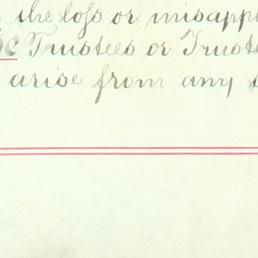 the loss or misappl
Trustees or Truste
arise from any